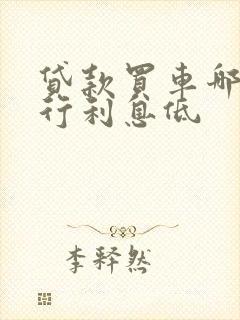 貸款買車哪
行利息低
李釋然